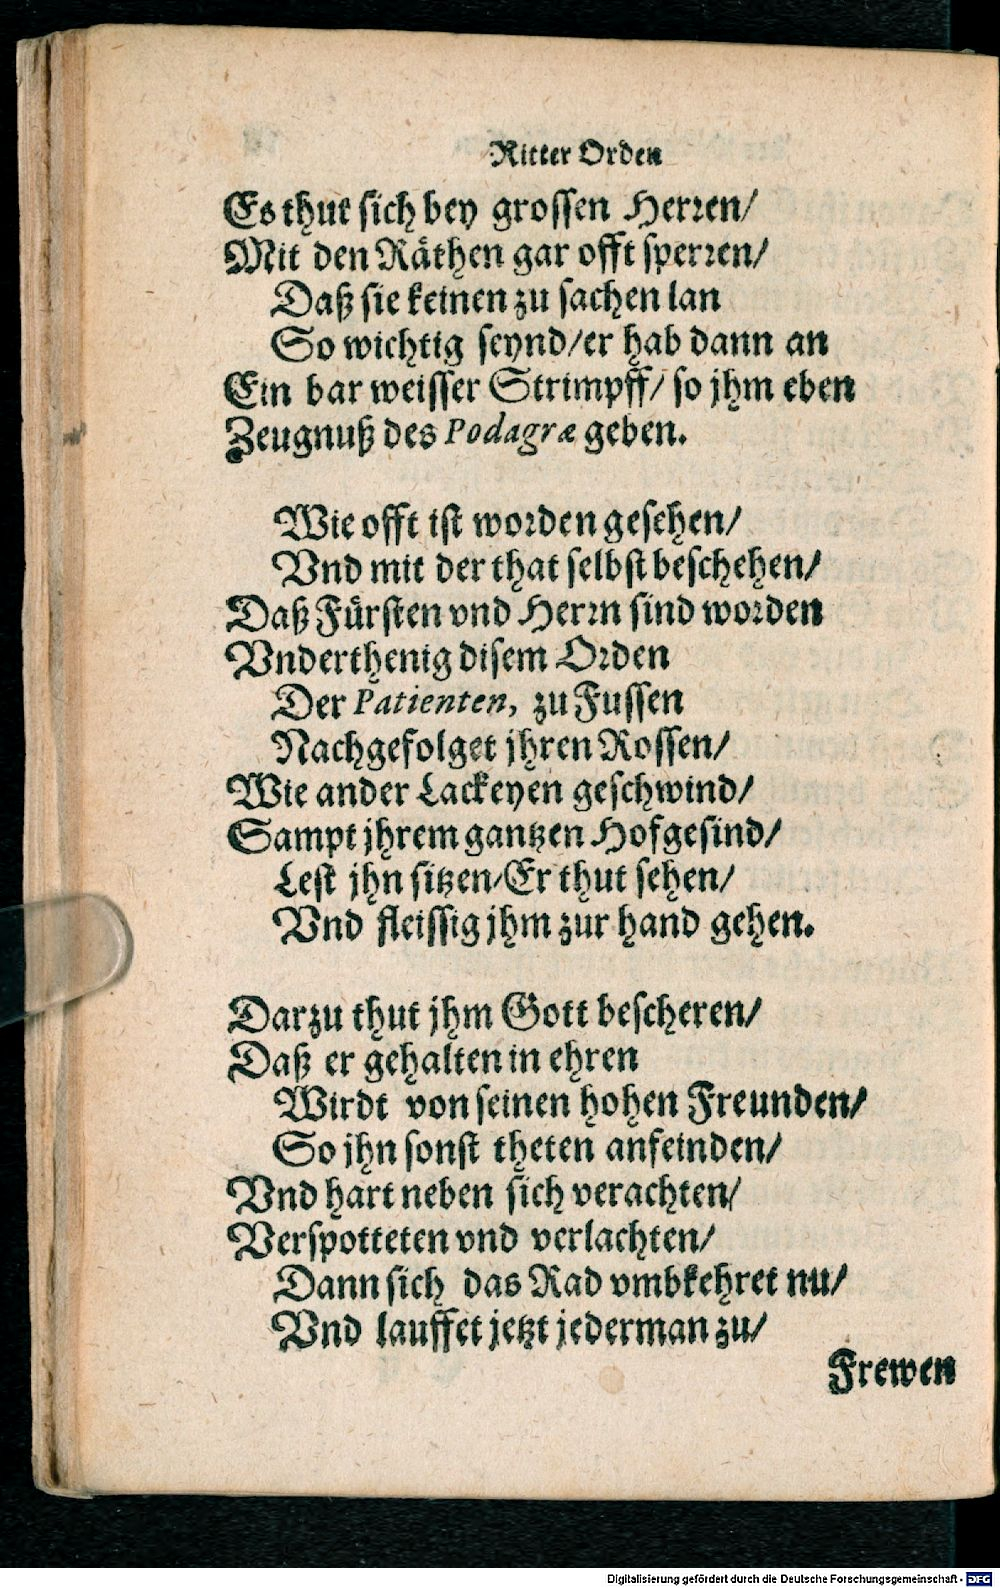 Ritter Orden
Es thut sich bey grossen Herren/
Mit den Räthen gar offt sperren/
Daß sie keinen zu sachen lan
So wichtig seynd/er hab dann an
Ein bar weisser Strimpff/ so jhm eben
Zeugnuß des Podagræ geben.
Wie offt ist worden gesehen/
Vnd mit der that selbst beschehen/
Daß Fürsten vnd Herrn sind worden
Vnderthenig disem Orden
Der Patienten, zu Fussen
Nachgefolget jhren Rossen/
Wie ander Lackeyen geschwind/
Sampt jhrem gantzen Hofgesind/
Lest jhn sitzen/Er thut sehen/
Vnd fleissig jhm zur hand gehen.
Darzu thut jhm Gott bescheren/
Daß er gehalten in ehren
Wirdt von seinen hohen Freunden/
So jhn sonst theten anfeinden/
Vnd hart neben sich verachten/
Verspotteten vnd verlachten/
Dann sich das Rad vmbkehret nu/
Vnd lauffet jetzt jederman zu/
Frewen
Digitalisierung gefördert durch die Deutsche Forschungsgemeinschaft - DFG